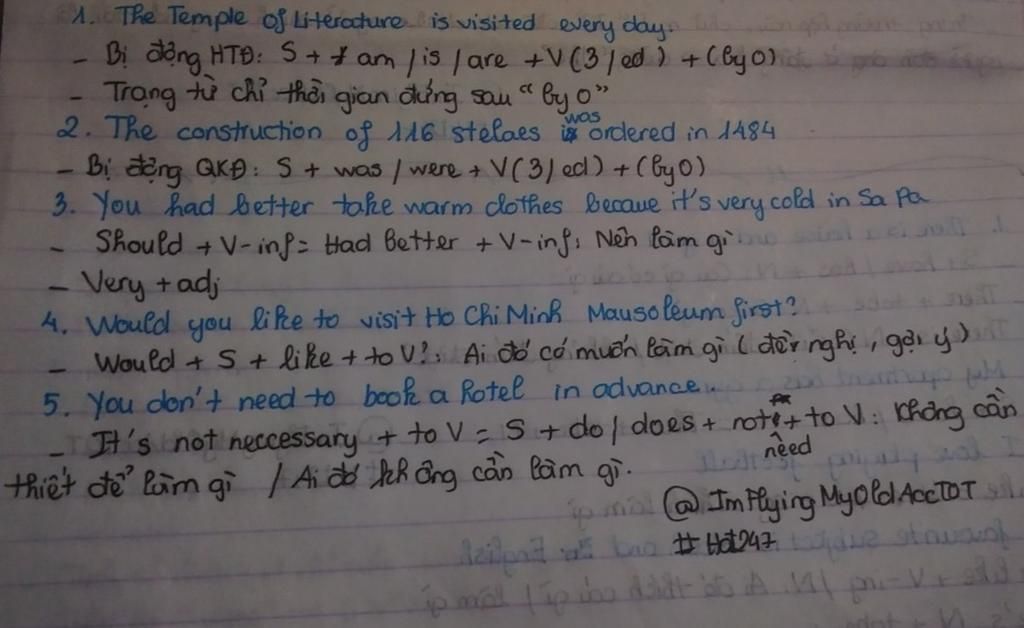 1. The Temple of Literature is visited every day.
- Bị động HTĐ: S + am / is / are + V(3/ed) + (by O)
- Trạng từ chỉ thời gian đứng sau "by O"
2. The construction of 116 stelaes was ordered in 1484
- Bị động QKĐ: S + was / were + V(3/ed) + (by O)
3. You had better take warm clothes becaue it's very cold in Sa Pa
- Should + V-inf = Had better + V-inf: Nên làm gì
- Very + adj
4. Would you like to visit Ho Chi Minh Mausoleum first?
- Would + S + like + to V?: Ai đó có muốn làm gì (đề nghị, gợi ý)
5. You don't need to book a hotel in advance.
- It's not neccessary + to V = S + do / does + not + need + to V: Không cần
thiết để làm gì / Ai đó không cần làm gì.
@ImFlyingMyOldAccTOT
#Hot247